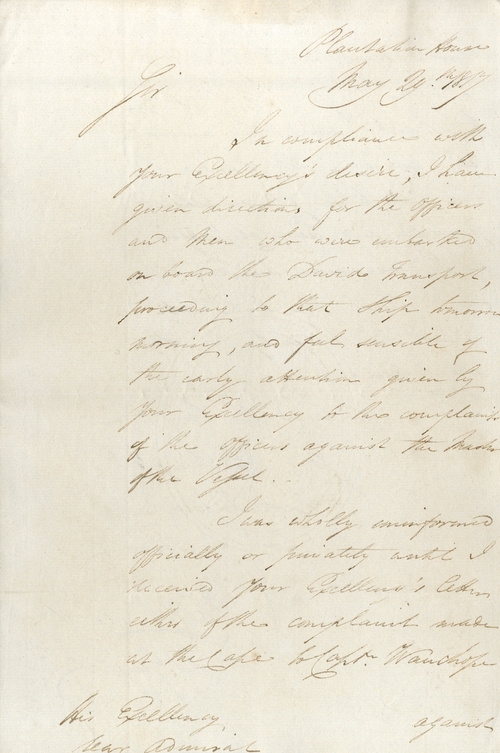 Plantation House
May 29.th 1817
Sir
In compliance with
Your Excellency's desire, I have
given directions for the officers
and Men who were embarked
on board the David Transport,
proceeding to that Ship tomorrow
morning, and feel sensible of
the early attention given by
Your Excellency to the complaints
of the officers against the Master
of the Vessel.
I was wholly uninformed
officially or privately until I
received Your Excellency's Letter
either of the complaint made
at the Cape to Capt. Wauchope
His Excellency against
Rear Admiral